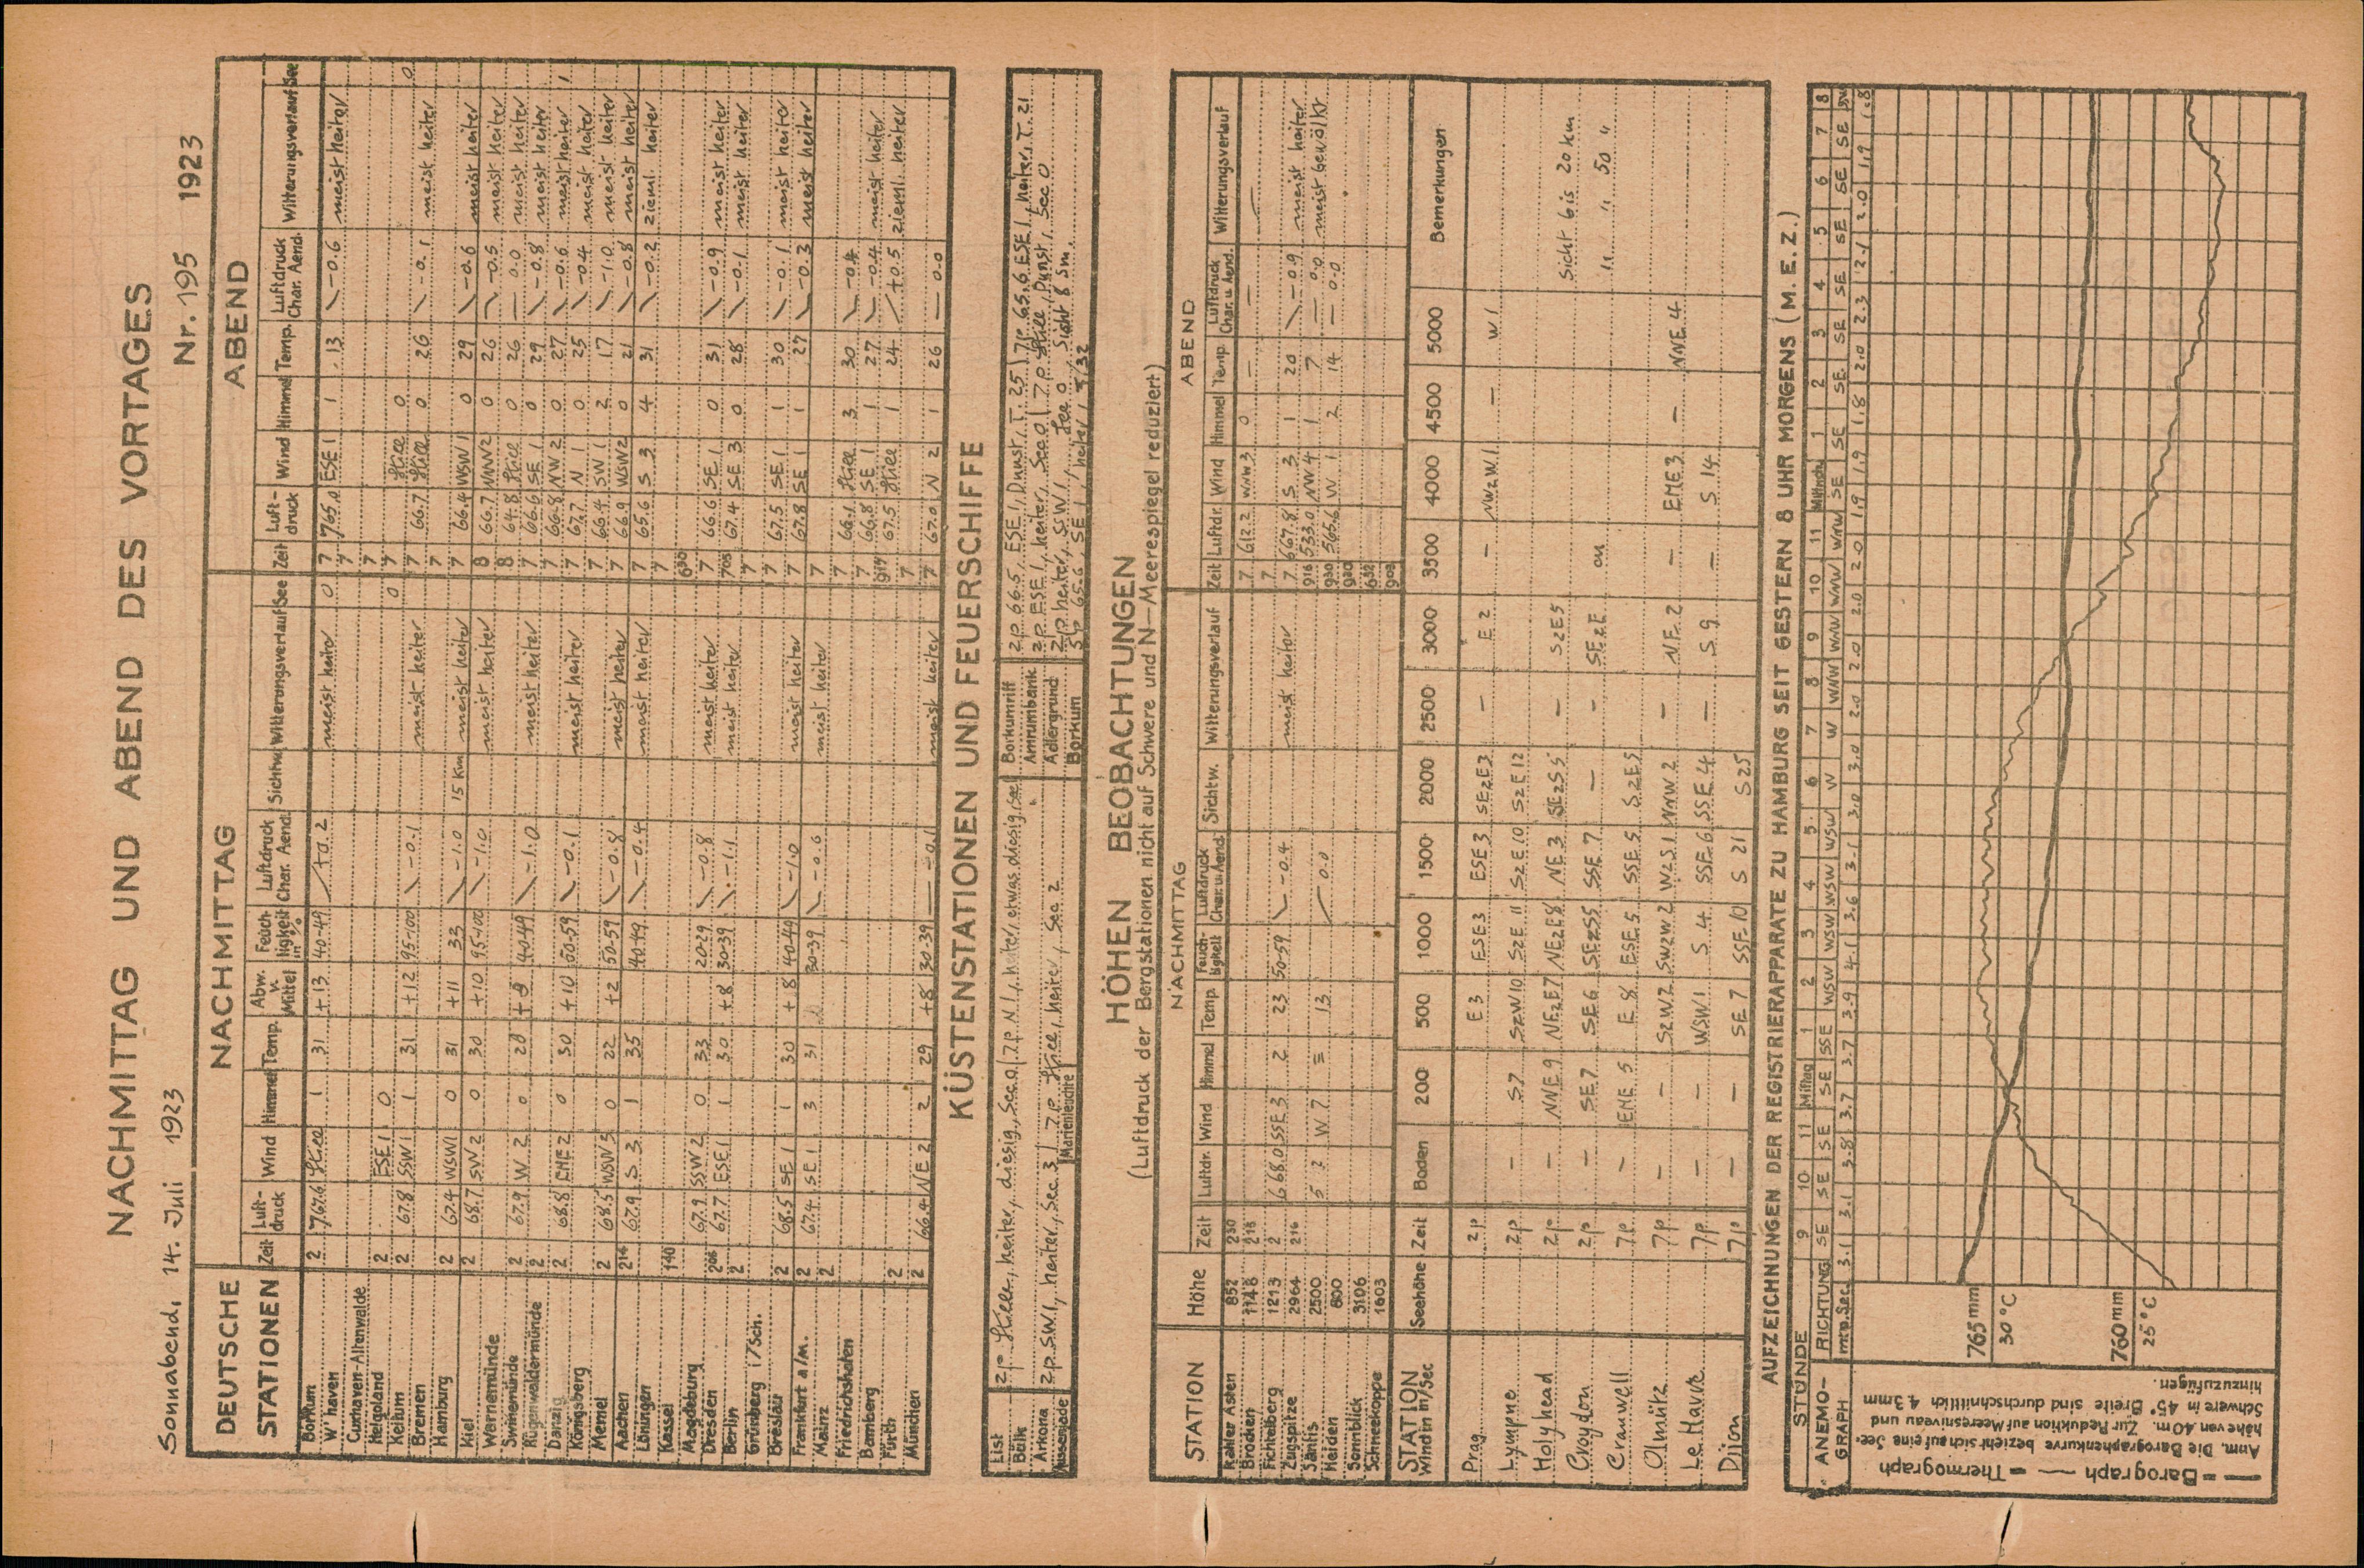 NACHMITTAG UND ABEND DES VORTAGES
Sonnabend, 14. Juli 1923 Nr. 195 1923
DEUTSCHE STATIONEN
NACHMITTAG
ABEND
Zeit Luft-druck Wind Himmel Temp. Abw. v. Mittel Feuch-tigkeit in % Luftdruck Char. Aend. Sichtw. Witterungsverlauf See
Zeit Luft-druck Wind Himmel Temp. Luftdruck Char. Aend. Witterungsverlauf See
Borkum 2 767.6 Stille 1 31 +13 40-49 +0.2 meist heiter 0 7 765.0 ESE 1 1 13 -0.6 meist heiter
W'haven 7
Cuxhaven-Altenwalde 7
Helgoland 2 ESE 1 0 0 7 Stille 0 0
Keitum 2 67.8 SSW 1 1 31 +12 95-100 -0.1 meist heiter 7 66.7 Stille 0 26 -0.1 meist heiter
Bremen 7
Hamburg 2 67.4 WSW 1 0 31 +11 33 -1.0 15 Km meist heiter 7 66.4 WSW 1 0 29 -0.6 meist heiter
Kiel 2 68.7 SW 2 0 30 +10 95-100 -1.0 meist heiter 8 66.7 WNW 2 0 26 -0.5 meist heiter
Warnemünde 8 64.8 Stille 0 26 0.0 meist heiter
Swinemünde 2 67.9 W 2 0 28 +9 40-49 -1.0 meist heiter 7 66.6 SE 1 0 29 -0.8 meist heiter
Rügenwaldermünde 2 7 66.8 NW 2 0 27 -0.6 meist heiter 1
Danzig 2 68.8 ENE 2 0 30 +10 50-59 -0.1 meist heiter 7 67.7 N 1 0 25 -0.4 meist heiter
Königsberg 7 66.4 SW 1 2 17 -1.0 meist heiter
Memel 2 68.5 WSW 5 0 22 +2 50-59 -0.8 meist heiter 7 66.9 WSW 2 0 21 -0.8 meist heiter
Aachen 2¹⁴ 67.9 S 3 1 35 40-49 -0.4 meist heiter 7 65.6 S 3 4 31 -0.2 zieml. heiter
Löningen 7
Kassel 1⁴⁰ 6³⁰
Magdeburg 67.9 SSW 2 0 33 20-29 -0.8 meist heiter 7 66.6 SE 1 0 31 -0.9 meist heiter
Dresden 2⁰⁶ 67.7 ESE 1 1 30 +8 30-39 -1.1 meist heiter 7⁰⁵ 67.4 SE 3 0 28 -0.1 meist heiter
Berlin 2 7
Grünberg i/Sch.
Breslau 2 68.5 SE 1 1 30 +8 40-49 -1.0 meist heiter 7 67.5 SE 1 1 30 -0.1 meist heiter
Frankfurt a/m. 2 67.4 SE 1 3 31 30-39 -0.6 meist heiter 7 67.8 SE 1 1 27 -0.3 meist heiter
Mainz 2 7
Friedrichshafen 7 66.1 Stille 3 30 -0.4
Bamberg 7 66.8 SE 1 1 27 -0.4 meist heiter
Fürth 2 9¹⁷ 67.5 Stille 1 24 +0.5 zieml. heiter
München 2 66.4 NE 2 2 29 +8 30-39 -0.1 meist heiter 7 67.0 N 2 1 26 0.0
KÜSTENSTATIONEN UND FEUERSCHIFFE
List 2p Stille, heiter, diesig, See 0 / 7p N 1, heiter, etwas diesig, See
Bülk
Arkona 2p SW 1, heiter, See 3 / 7p Stille, heiter, See 2
Wussegade
Marienleuchte
Borkumriff 2p 66.5, ESE 1, Dunst, T. 25 / 7p 65.6 ESE 1, heiter, T. 21
Amrumbank 2p ESE 1, heiter, See 0 / 7p Stille, Dunst, See 0
Adlergrund 2p heiter, SSW 1, See 0, Sicht 8 Sm.
Borkum 5p 65.6, SE 1, heiter, T. 32
HÖHEN BEOBACHTUNGEN
(Luftdruck der Bergstationen nicht auf Schwere und N—Meerespiegel reduziert)
STATION Höhe
NACHMITTAG
ABEND
Zeit Luftdr. Wind Himmel Temp. Feuch-tigkeit Luftdruck Char. u. Aend. Sichtw. Witterungsverlauf
Zeit Luftdr. Wind Himmel Temp. Luftdruck Char. u. Aend. Witterungsverlauf
Kahler Asten 852 2³⁰ 7 612.2 WNW 3 0 — — —
Brocken 1148 2¹⁸ 7
Fichtelberg 1213 2 668.0 SSE 3 2 23 50-59 -0.4 meist heiter 7 667.8 S 3 1 20 -0.9 meist heiter
Zugspitze 2964 2¹⁶ 9¹⁶ 533.0 NW 4 1 7 0.0 meist bewölkt
Säntis 2500 5 ? W 7 ≡ 13 0.0 9³⁰ 565.6 W 1 2 14 0.0
Heiden 800 9³⁰
Sonnblick 3106 6³²
Schneekoppe 1603 9⁰³
STATION Wind in m/Sec Seehöhe Zeit Boden 200 500 1000 1500 2000 2500 3000 3500 4000 4500 5000 Bemerkungen
Prag 2p E 3 ESE 3 ESE 3 SEzE 3 — E 2 — NWzW 1 — W 1
Lympne 2p — S 7 SzW 10 SzE 11 SzE 10 SzE 12
Holyhead 2p — NNE 9 NEzE 7 NEzE 8 NE 3 SEzS 5 — SzE 5 Sicht bis 20 km
Croydon 2p — SE 7 SE 6 SEzS 5 SSE 7 — — SEzE ou " " 50 "
Cranwell 7p — ENE 5 E 8 ESE 5 SSE 5 SzE 5
Olmütz 7p — — SzW 2 SWzW 2 WzS 1 WNW 2 — NE 2 — ENE 3 — NNE 4
Le Havre 7p — — WSW 1 S 4 SSE 6 SSE 4 — S 9 — S 14
Dijon 7p — — SE 7 SSE 10 S 21 S 25
AUFZEICHNUNGEN DER REGISTRIERAPPARATE ZU HAMBURG SEIT GESTERN 8 UHR MORGENS (M.E.Z.)
STUNDE 9 10 11 Mittag 1 2 3 4 5 6 7 8 9 10 11 Mittnch. 1 2 3 4 5 6 7 8
ANEMO-GRAPH
RICHTUNG SE SE SE SE SSE WSW WSW WSW WSW W W WNW WNW WNW WNW SE SE SE SE SE SE SE SE
mtp.Sec. 3.1 3.1 3.8 3.7 3.7 3.9 4.1 3.6 3.1 3.0 3.0 2.0 2.0 2.0 2.0 1.9 1.9 1.8 2.0 2.3 2.1 2.0 1.9 1.8
765 mm
30 °C
760 mm
25 °C
— = Barograph — = Thermograph
Anm. Die Barographenkurve bezieht sich auf eine See-
höhe van 40 m. Zur Reduktion auf Meeresniveau und
Schwere in 45° Breite sind durchschnittlich 4,3 mm
hinzuzufügen.